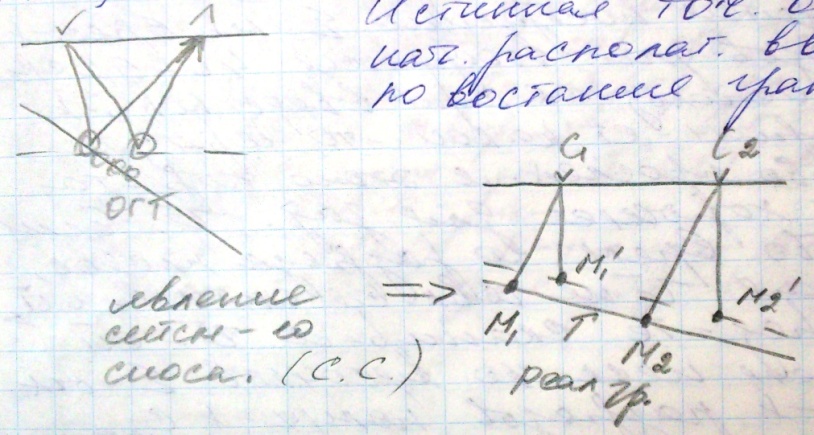 Истинная точ. о
нач. располаг. вв
по востание гран
ОГТ
C1
C2
M1'
M2'
M1
Г
M2
реал гр.
явление
сейсм-го
сноса. (С.С.)